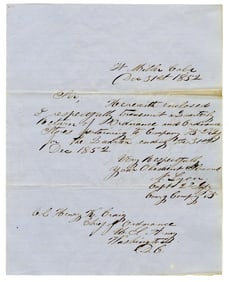 Ft Miller Cala
Dec 31st 1852
Sir,
Herewith enclosed
I respectfully transmit a quarterly
Return of Ordnance and Ordnance
Stores pertaining to Company
for the Quarter ending the 31st
Dec 1852.
Very Respectfully
Your Obedient Servant
N. Lyon
Capt 2d Inf
Comg Comp'y B
Col. Henry K. Craig
Chief of Ordnance
U.S. Army
Washington
D.C.